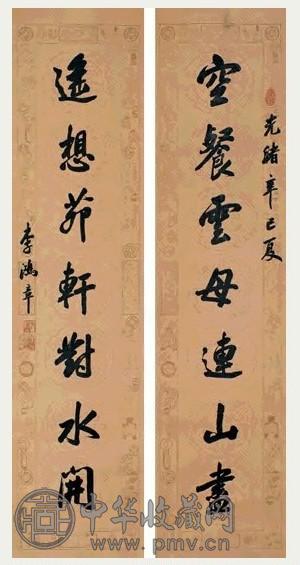 光緒辛巳夏
空餐雲母連山盡
遙想茆軒對水開
李鴻章
中华收藏网
www.pmv.cn